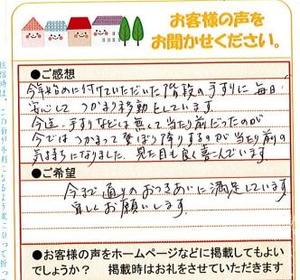 お客様の声を
お聞かせください。
●ご感想
今年始めに付けていただいた階段の手すりに毎日
安心して つかまり移動をしています。
今迄、手すりなどは無くて当り前だったのが
今ではつかまって登ぼり降りするのが当り前の
気持ちになりました。見た目も良く喜んでいます
●ご希望
今まで通りのおつきあいに満足しています
宜しくお願いします。
●お客様の声をホームページなどに掲載してもよい
でしょうか? 掲載時はお礼をさせていただきます